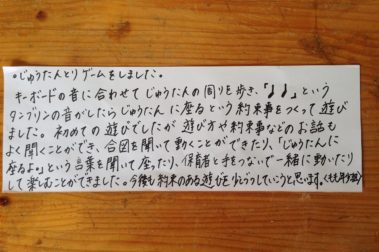 。じゅうたんとりゲームをしました。
キーボードの音に合わせてじゅうたんの周りを歩き、「♩♩」という
タンブリンの音がしたらじゅうたんに座るという約束事をつくって遊び
ました。初めての遊びでしたが遊び方や約束事などのお話も
よく聞くことができ、合図を聞いて動くことができたり、「じゅうたんに
座るよ。」という言葉を聞いて座ったり、保育者と手をつないで一緒に動いたり
して楽しむことができました。今後も約束のある遊びを少しずつしていこうと思います。〈もも年少組〉